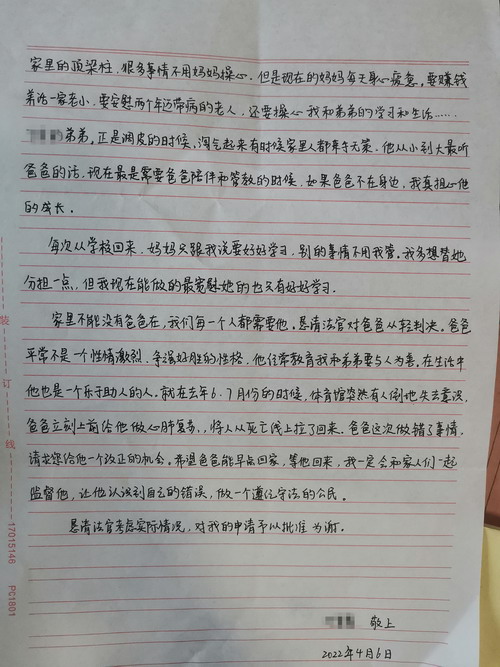 家里的顶梁柱，很多事情不用妈妈操心。但是现在的妈妈每天身心疲惫。要赚钱
养活一家老小，要安慰两个年迈带病的老人，还要操心我和弟弟的学习和生活……
的弟弟。正是调皮的时候，淘气起来有时候家里人都束手无策。他从小到大最听
爸爸的话，现在最是需要爸爸陪伴和管教的时候，如果爸爸不在身边，我真担心他
的成长。
每次从学校回来，妈妈只跟我说要好好学习，别的事情不用我管。我多想替她
分担一点，但我现在能做的最宽慰她的也只有好好学习。
家里不能没有爸爸在，我们每一个人都需要他。恳请法官对爸爸从轻判决。爸爸
平常不是一个性情激烈、争强好胜的性格，他经常教育我和弟弟要与人为善。在生活中
他也是一个乐于助人的人。就在去年6、7月份的时候，体育馆突然有人倒地失去意识，
爸爸立刻上前给他做心肺复苏，将人从死亡线上拉了回来。爸爸这次做错了事情，
请求您给他一个改正的机会。希望爸爸能早点回家，等他回来，我一定会和家人们一起
监督他，让他认识到自己的错误，做一个遵纪守法的公民。
恳请法官考虑实际情况，对我的申请予以批准为谢。
敬上
2022年4月6日
装订线
17015146 PC1801